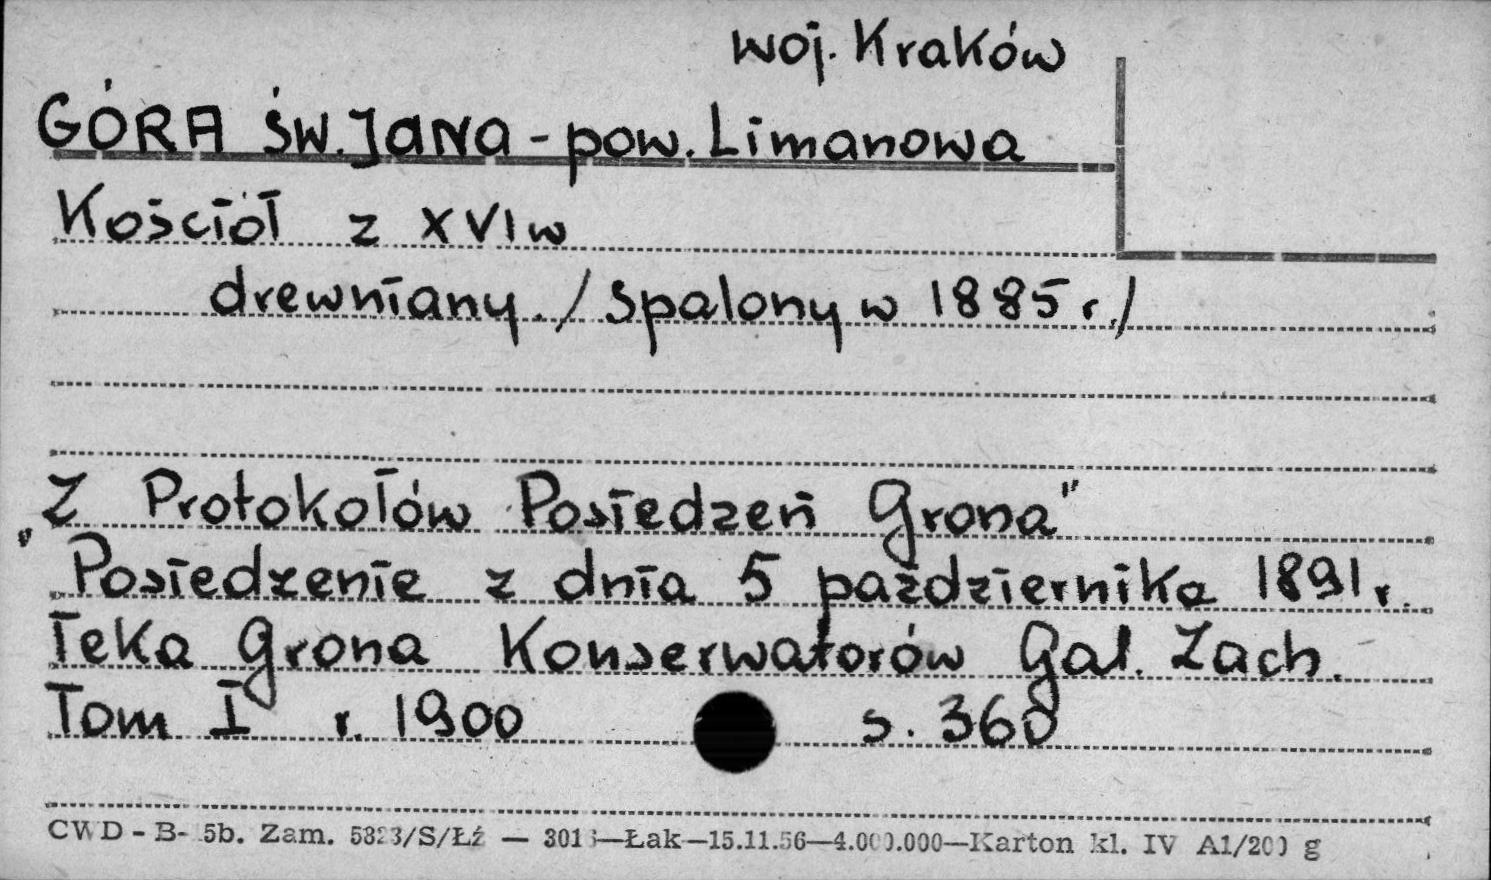 woj. Kraków
GÓRA ŚW. JANA - pow. Limanowa
Kościół z XVI w
drewniany. / spalony w 1885 r. /
„Z Protokołów Posiedzeń Grona"
Posiedzenie z dnia 5 października 1891 r.
Teka Grona Konserwatorów Gal. Zach.
Tom I r. 1900 s. 360
CWD - B- 5b. Zam. 5823/S/Łź — —Łak—15.11.56—4.000.000—Karton kl. IV A1/200 g